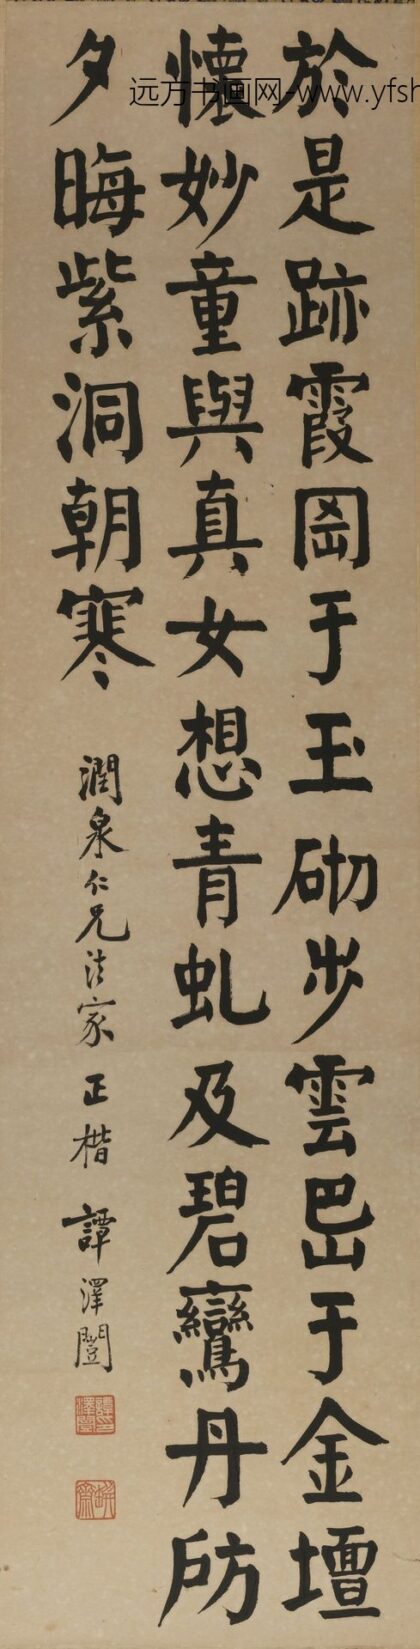 於是跡霞岡于玉砌步雲峊于金壇
懷妙童與真女想青虬及碧鸞丹房
夕晦紫洞朝寒
潤泉仁兄法家正楷
譚澤闓
远方书画网-www.yfsh